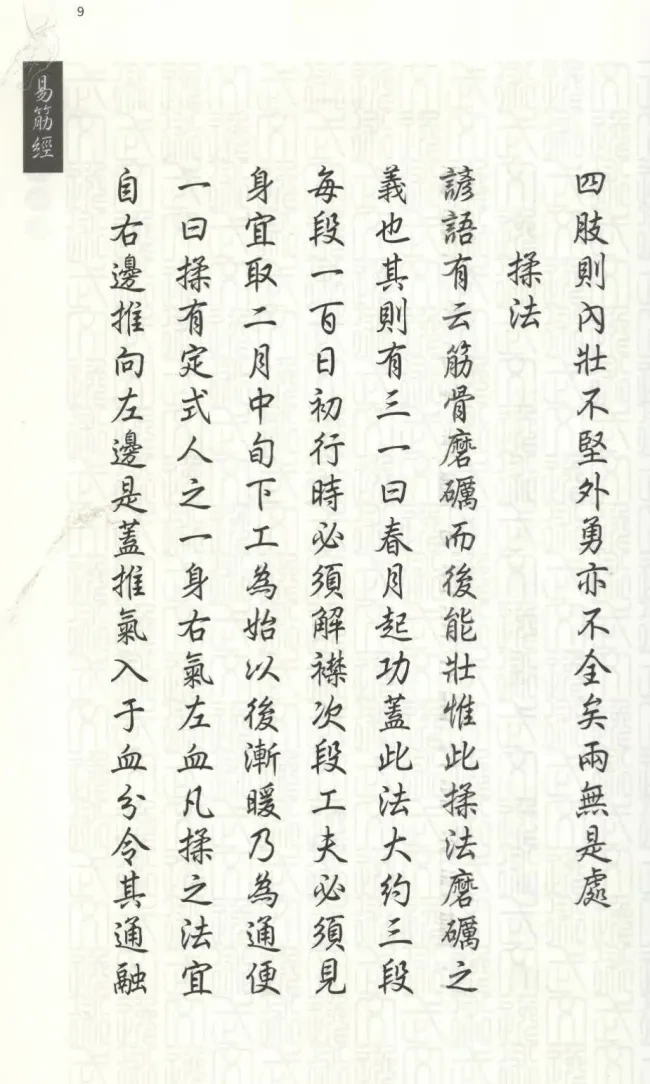 9
易筋經
四肢則內壯不堅外勇亦不全矣兩無是處
揉法
諺語有云筋骨磨礪而後能壯惟此揉法磨礪之
義也其則有三一曰春月起功蓋此法大約三段
每段一百日初行時必須解襟次段工夫必須見
身宜取二月中旬下工為始以後漸暖乃為通便
一曰揉有定式人之一身右氣左血凡揉之法宜
自右邊推向左邊是蓋推氣入于血分令其通融